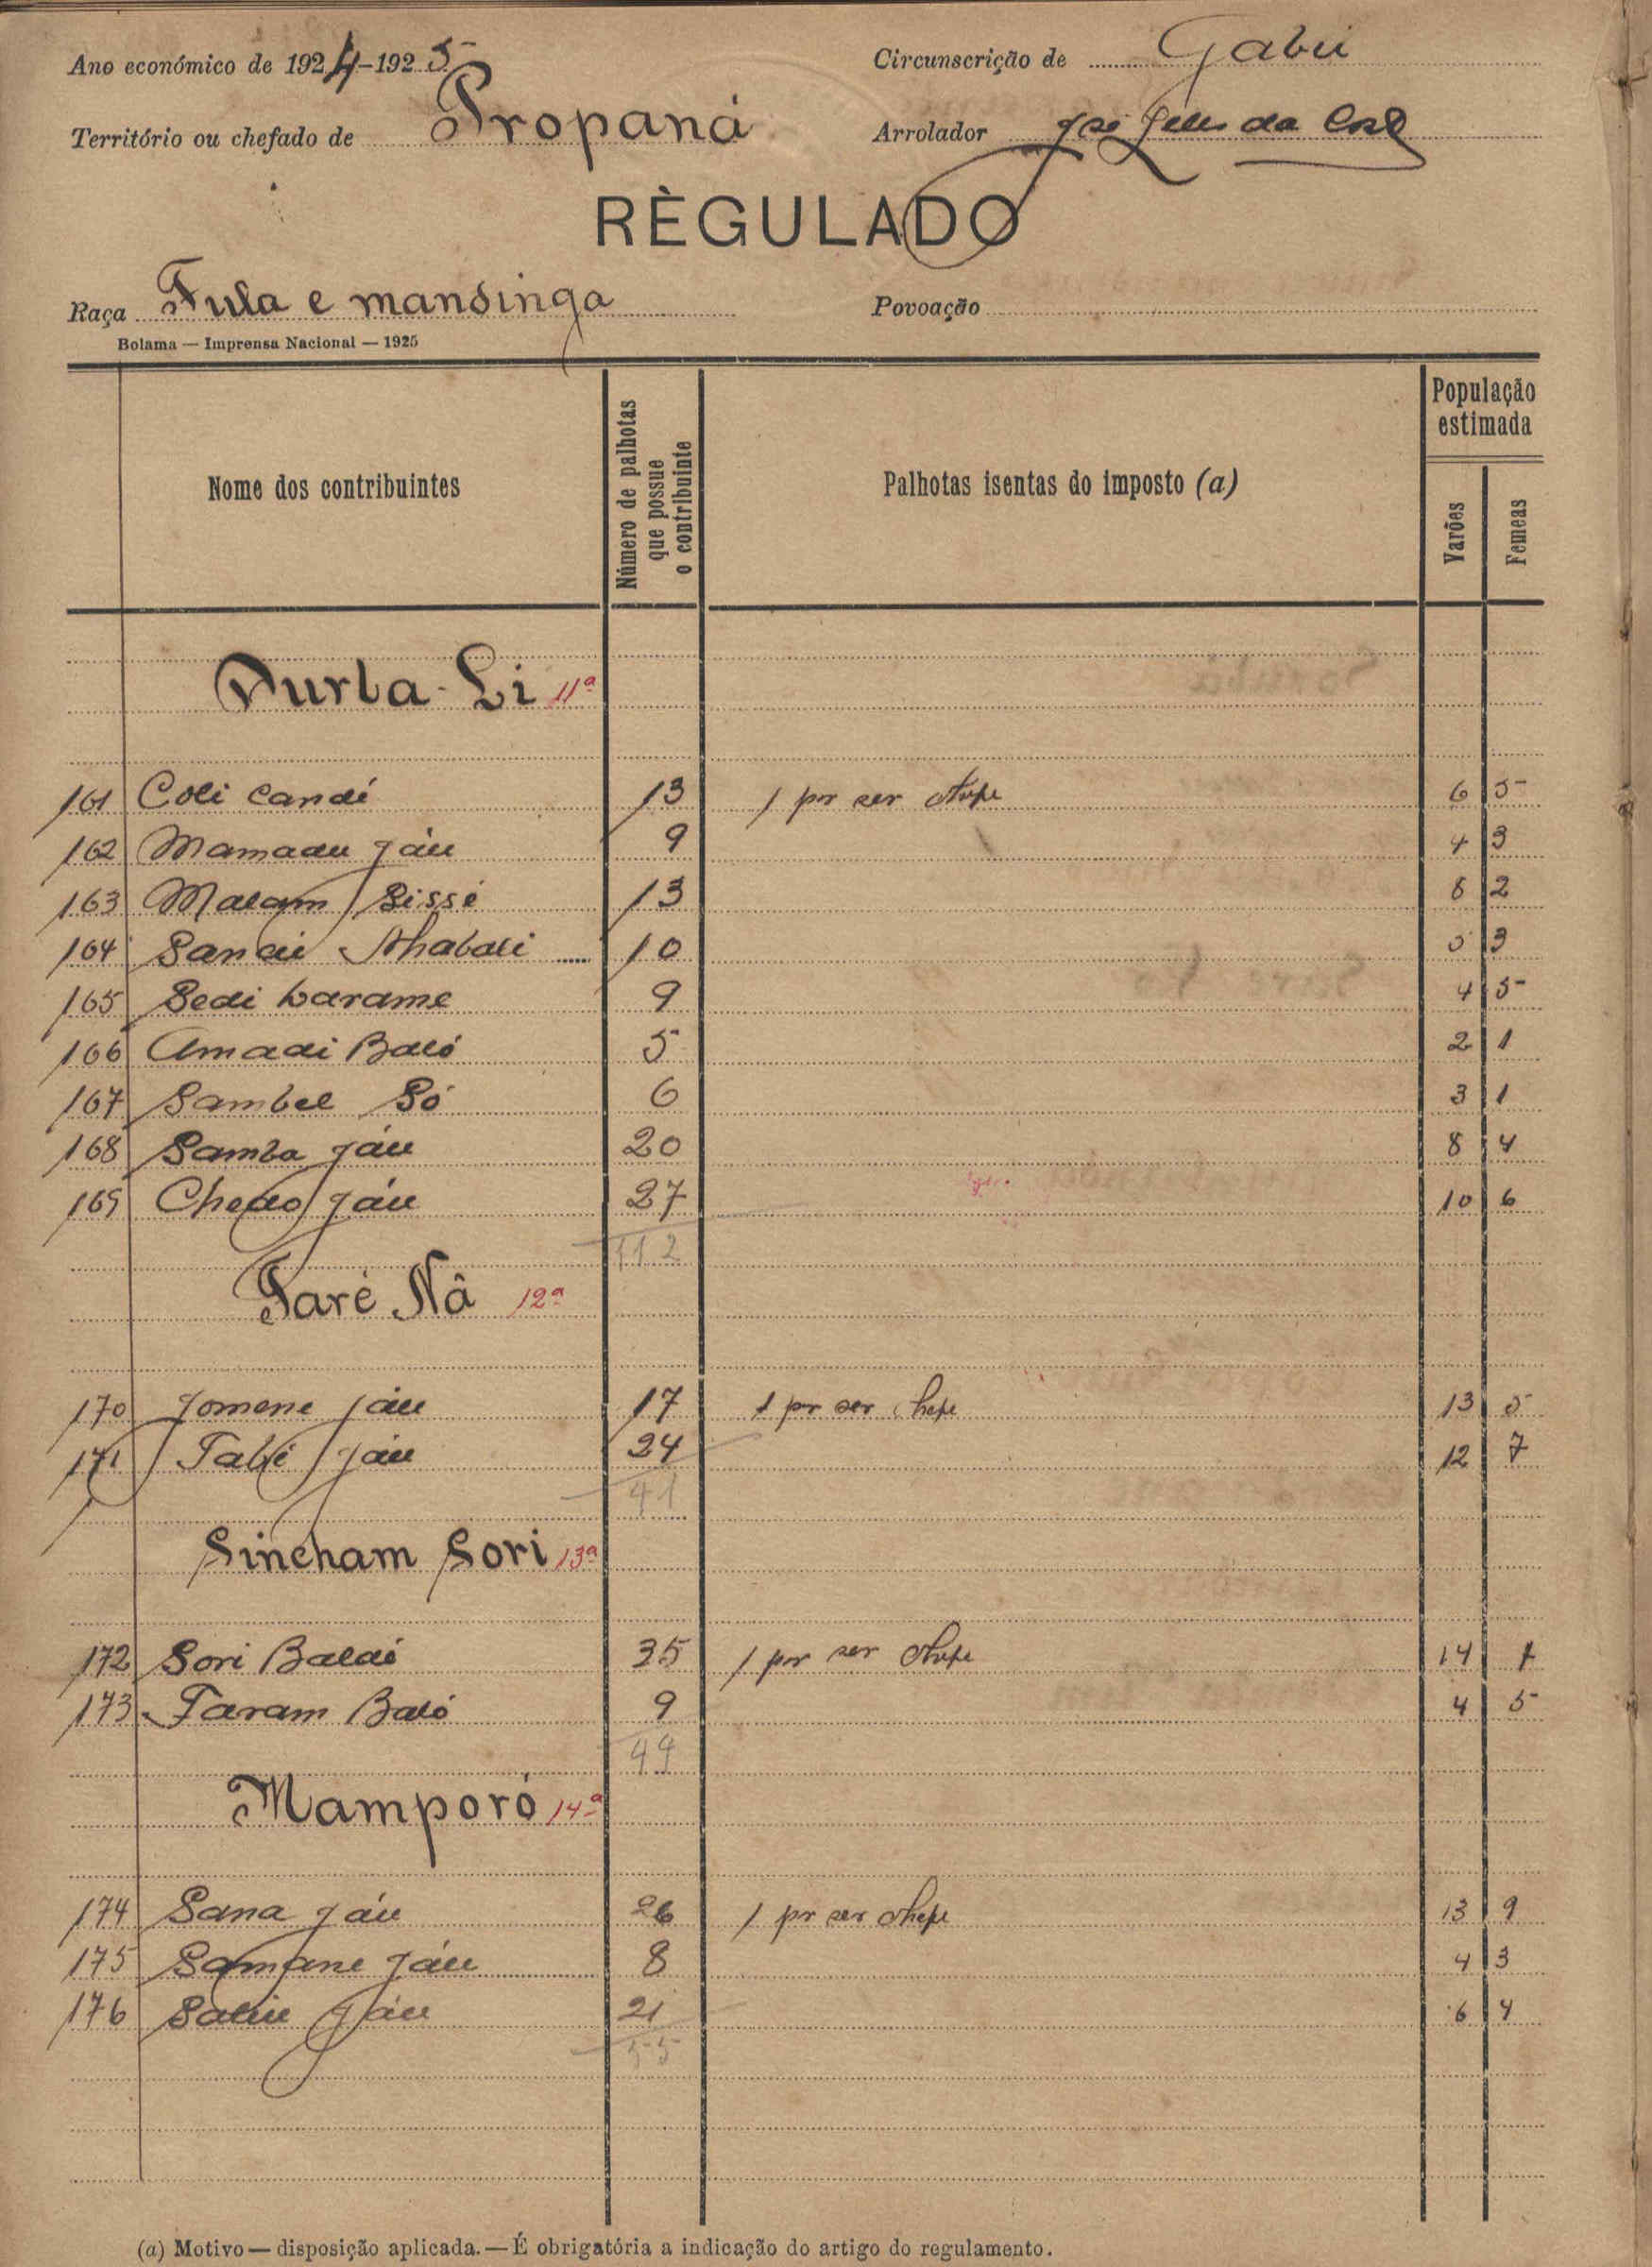 Ano económico de 1924-1925 Circunscrição de Gabú
Território ou chefado de Propaná Arrolador José da
RÈGULADO
Raça Fula e mandinga Povoação
Bolama — Imprensa Nacional — 1925
Nome dos contribuintes
Número de palhotas que possue o contribuinte
Palhotas isentas do imposto (a)
População estimada
Varões
Femeas
Durba-Li 11ª
161 Coli Candé 13 1 por ser chefe 6 5
162 Mamadu Jáu 9 4 3
163 Malam Sissé 13 8 2
164 10 5 3
165 Sedi 9 4 5
166 Amadi Baló 5 2 1
167 Sambel Só 6 3 1
168 Samba Jáu 20 8 4
169 Jáu 27 10 6
112
Saré Nâ 12ª
170 Jomene Jáu 17 1 por ser chefe 13 5
171 Jáu 24 12 7
41
Sincham Sori 13ª
172 Sori Baldé 35 1 por ser chefe 14
173 Faram Baló 9 4 5
44
Mamporó 14ª
174 Sana Jáu 26 1 por ser chefe 13 9
175 Samane Jáu 8 4 3
176 Saliu Jáu 21 6 4
55
(a) Motivo — disposição aplicada. — É obrigatória a indicação do artigo do regulamento.